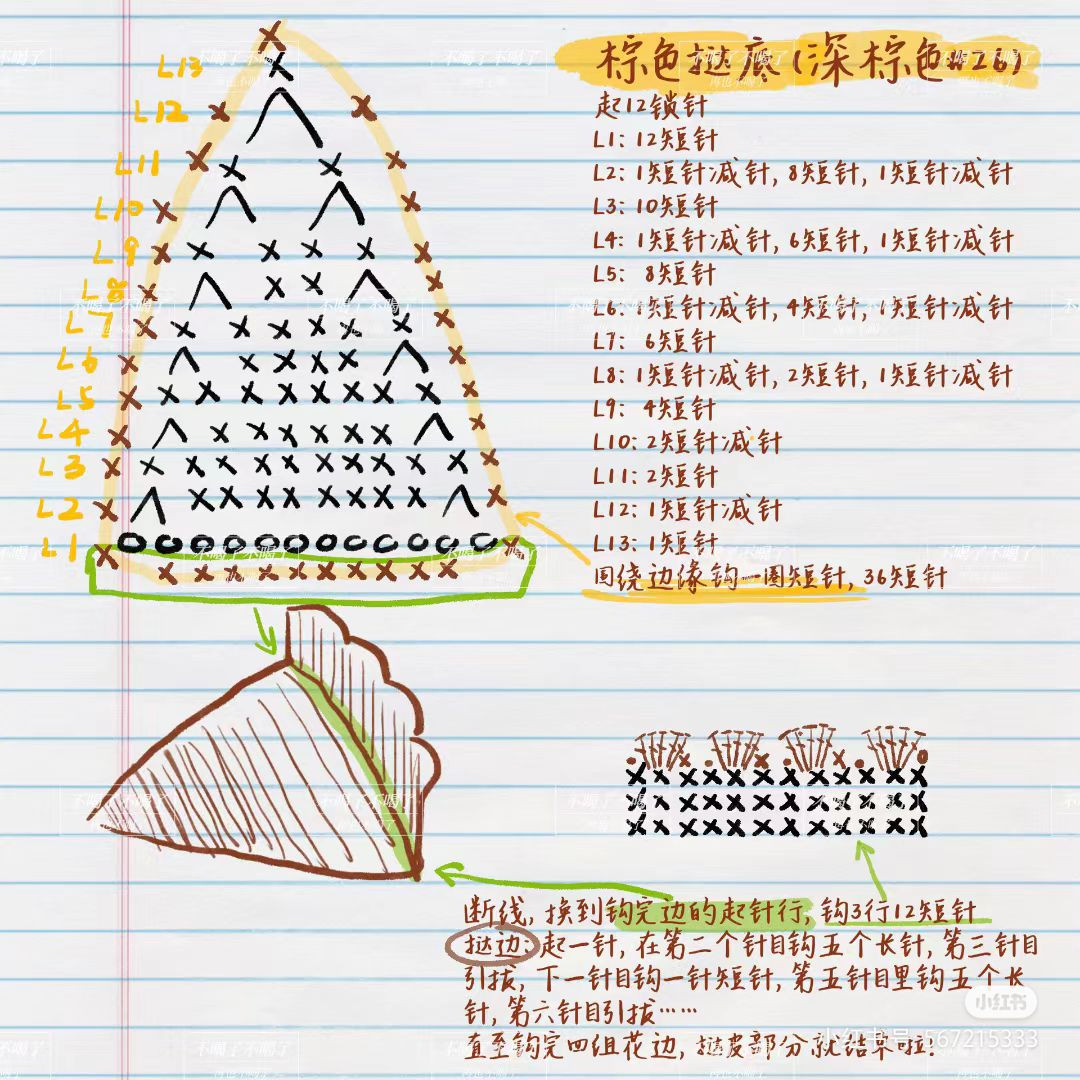 棕色挞底(深棕色#26)
起12锁针
L1: 12短针
L2: 1短针减针, 8短针, 1短针减针
L3: 10短针
L4: 1短针减针, 6短针, 1短针减针
L5: 8短针
L6: 1短针减针, 4短针, 1短针减针
L7: 6短针
L8: 1短针减针, 2短针, 1短针减针
L9: 4短针
L10: 2短针减针
L11: 2短针
L12: 1短针减针
L13: 1短针
围绕边缘钩一圈短针, 36短针
L13
L12
L11
L10
L9
L8
L7
L6
L5
L4
L3
L2
L1
断线, 换到钩完边的起针行, 钩3行12短针
挞边: 起一针, 在第二个针目钩五个长针, 第三针目
引拔, 下一针目钩一针短针, 第五针目里钩五个长
针, 第六针目引拔……
直至钩完四组花边, 挞皮部分就结束啦!
小红书
小红书号:567215333
不喝了不喝了